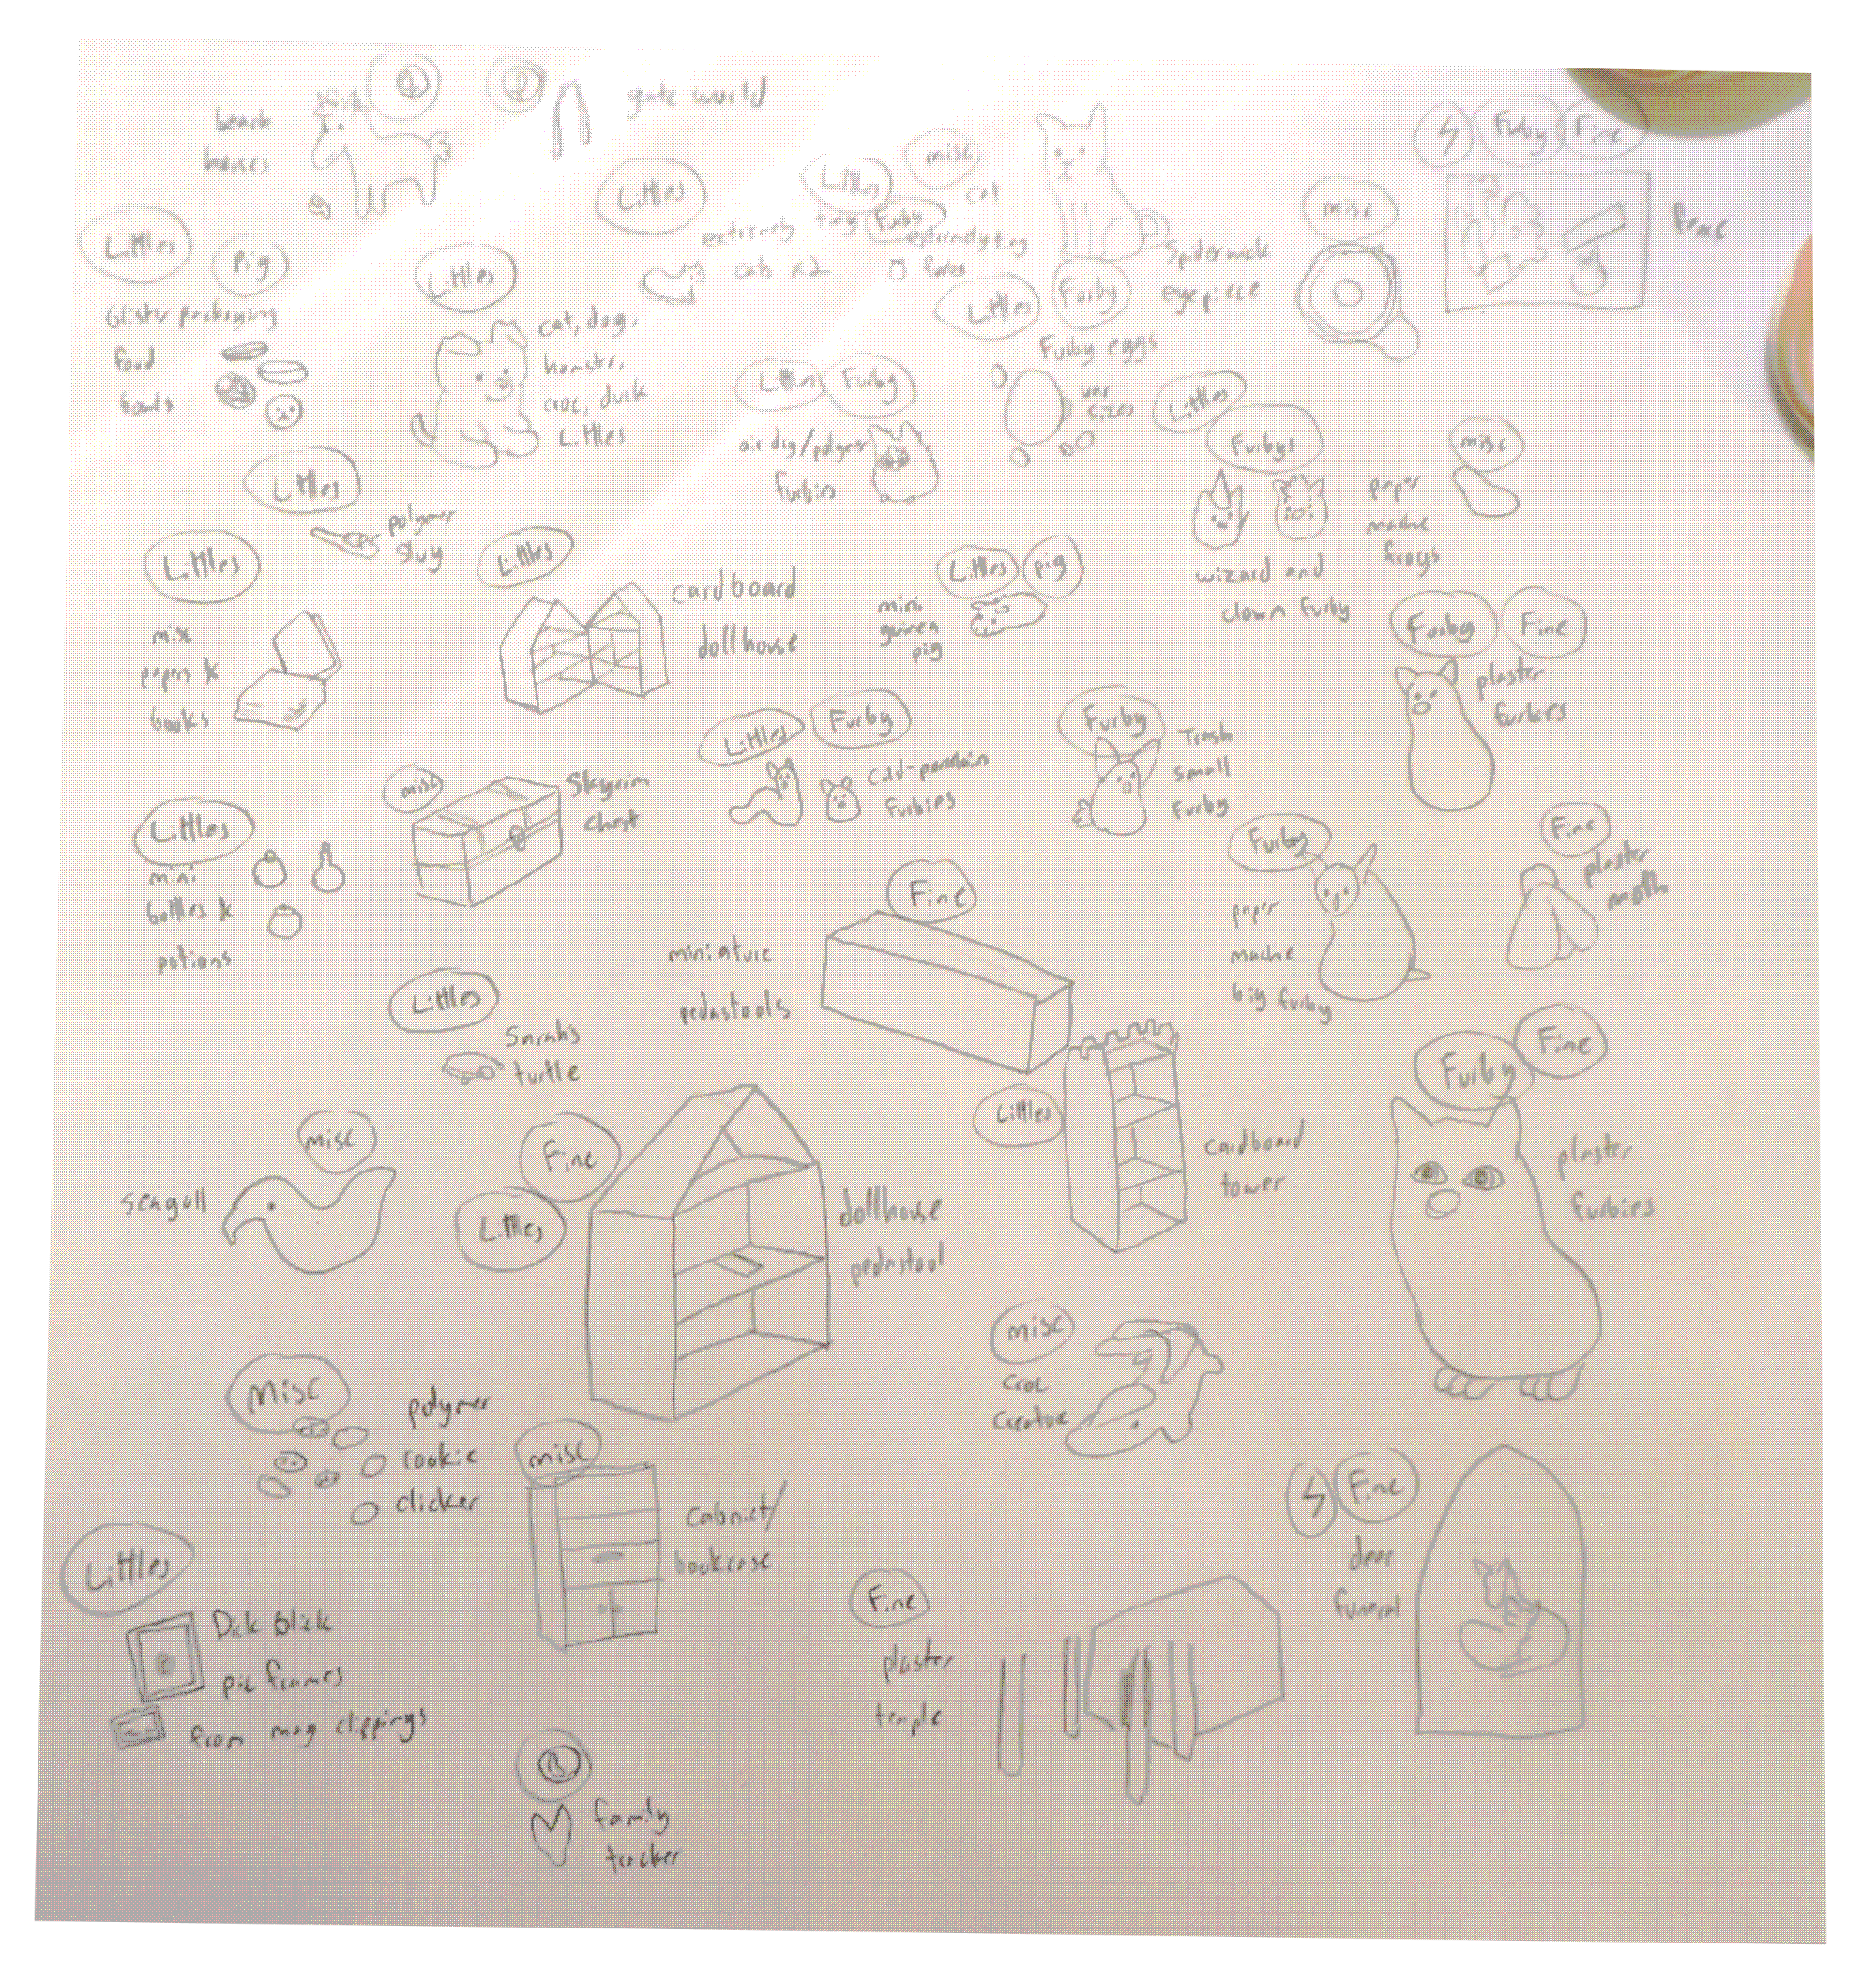 gate world
horses
Littles
pig
blister packaging
food
bowls
Littles
cat, dog,
hamstr,
croc, duck
Littles
Littles
extremely tiny
cats x2
Littles
misc
cat
Furby
extremely tiny
furbs
Littles
Furby
Furby eggs
var
sizes
Spiderwick
eyepiece
misc
Furby
Fine
Furby
air dry/polymer
furbies
Littles
Furbys
wizard and
clown furby
misc
paper
mache
frogs
Littles
polymer
slug
Littles
misc
papers &
books
Littles
cardboard
dollhouse
Littles
pig
mini
guinea
pig
Furby
Fine
plaster
furbies
misc
Skyrim
chest
Littles
Furby
Cold-porcelain
furbies
Furby
Trash
small
furby
Littles
mini
bottles &
potions
Fine
miniature
pedastools
Furby
paper
mache
big furby
Fine
plaster
moth
Littles
Sarah's
turtle
misc
seagull
Fine
Littles
dollhouse
pedastool
Littles
cardboard
tower
Furby
Fine
plaster
furbies
misc
croc
creature
Misc
polymer
cookie
clicker
misc
Cabniet/
bookcase
Fine
deer
funeral
Littles
Dick Blick
pic frames
from mag clippings
Fine
plaster
temple
family
tracker